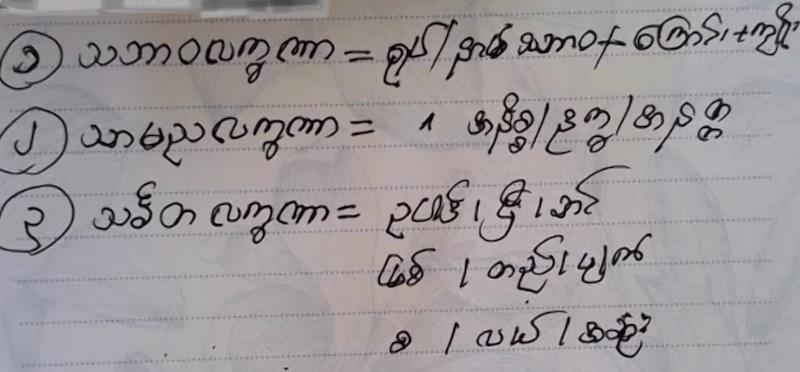 ၁ သဘာဝလက္ခဏာ = ရုပ်/နာမ် သဘာဝ + ကြောင်း + ကျိုး
၂ သာမညလက္ခဏာ = ^ အနိစ္စ/ဒုက္ခ/အနတ္တ
၃ သင်္ခတလက္ခဏာ = ဥပါဒ်၊ ဋ္ဌီ၊ ဘင်
ဖြစ် ၊ တည်၊ ပျက်
စ / လယ် / အဆုံး